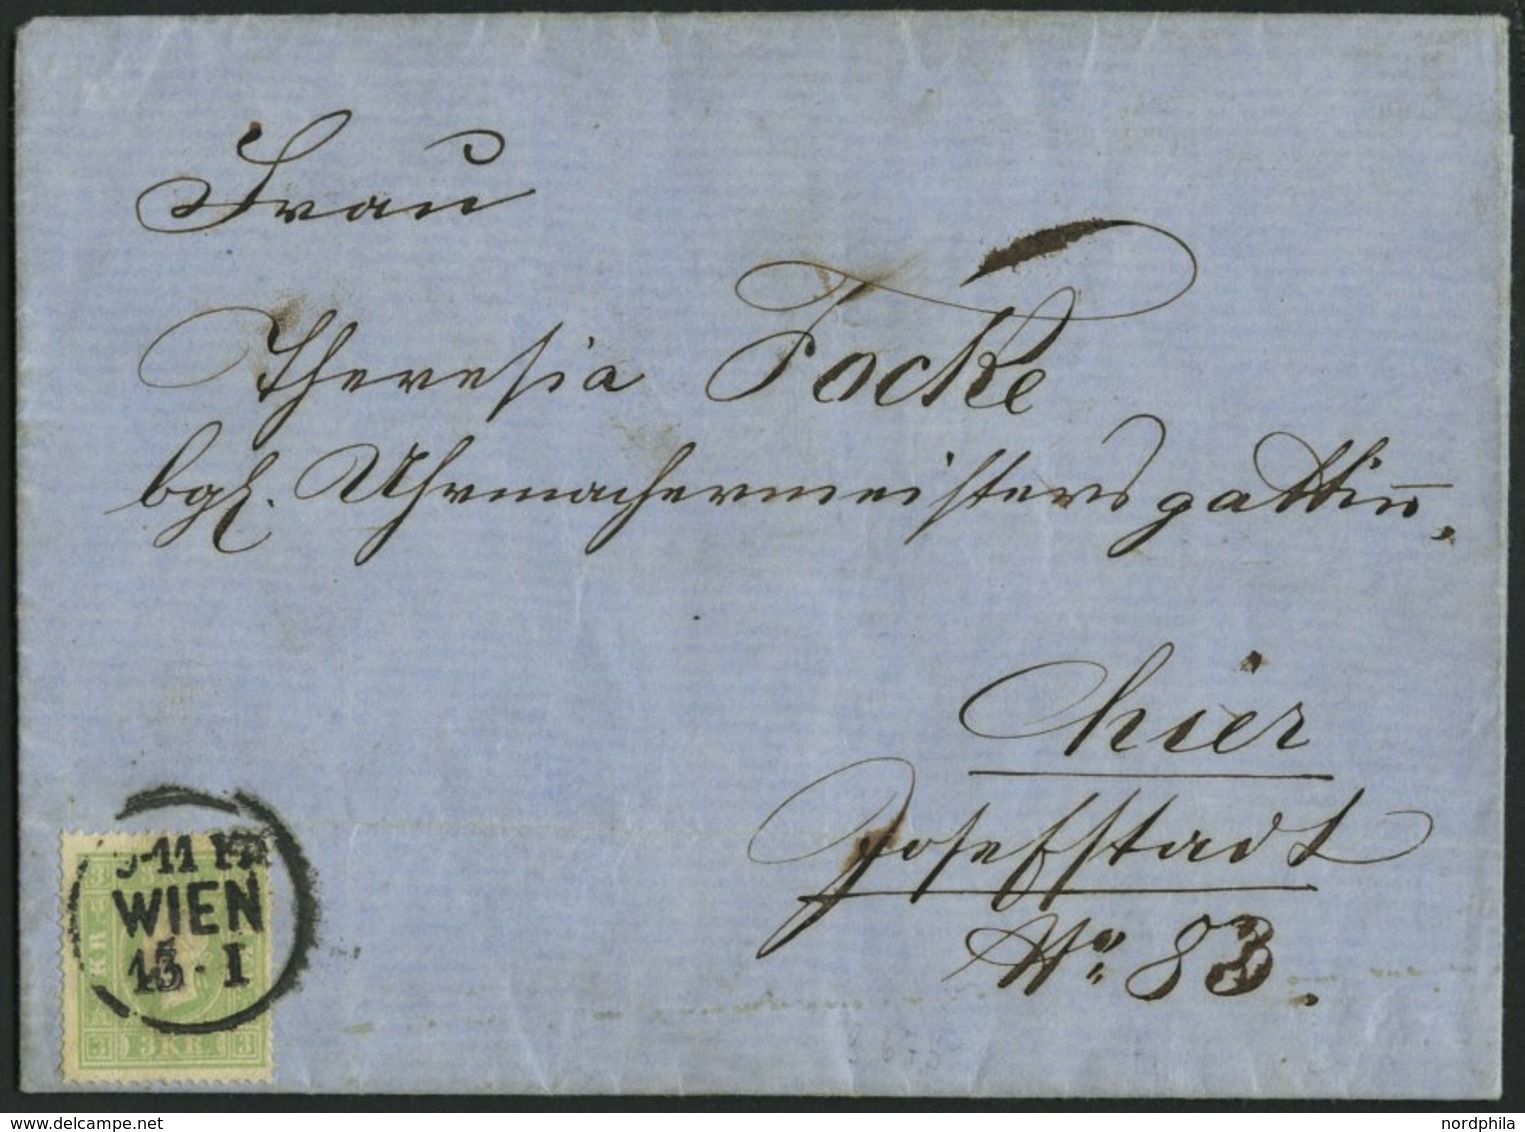 Frau
Theresia Focke
bgl. Uhrmachermeisters gattin,
hier
Josefstadt
No 83.
9-11
WIEN
13·I
KR
3 3KR 3
nordphila